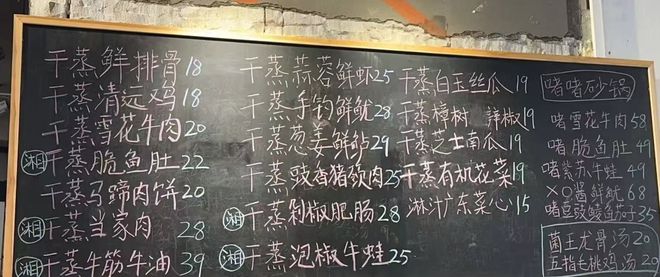 干蒸鲜排骨18
干蒸清远鸡18
干蒸雪花牛肉20
湘 干蒸脆鱼肚22
干蒸马蹄肉饼20
湘 干蒸当家肉 28
湘 干蒸牛筋牛油 39
干蒸蒜蓉鲜虾25
干蒸手钓鲜鱿28
干蒸葱姜鲜鲈29
干蒸豉香猪颈肉25
湘 干蒸剁椒肥肠28
湘 干蒸泡椒牛蛙25
干蒸白玉丝瓜19
干蒸樟树 椒19
干蒸芝士南瓜19
干蒸有机花菜19
淋汁广东菜心15
啫啫砂锅
啫雪花牛肉58
啫脆鱼肚49
啫紫苏牛蛙49
XO酱鲜鱿68
啫豆豉鲮鱼茄子35
菌王龙骨汤20
五指毛桃鸡汤20